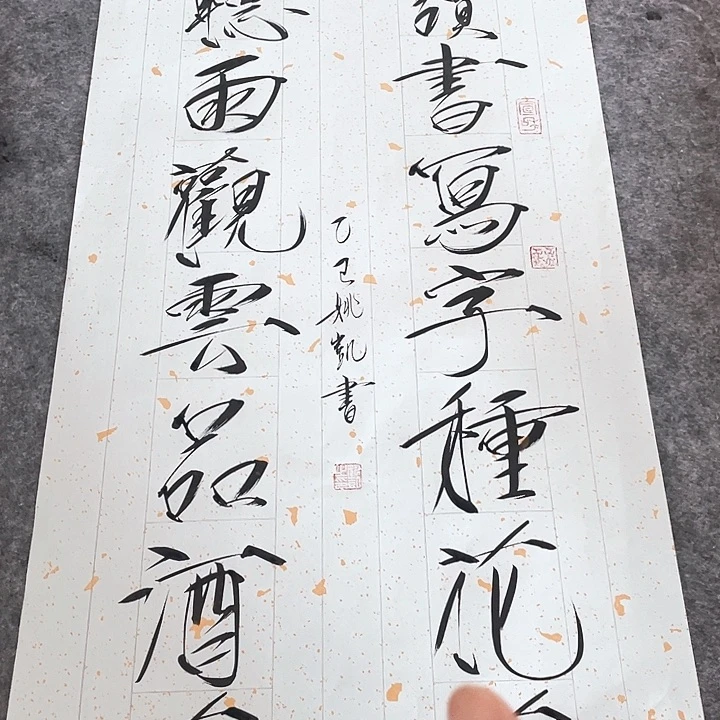 讀書寫字種花
聽雨觀雲品酒
乙巳姚凱書